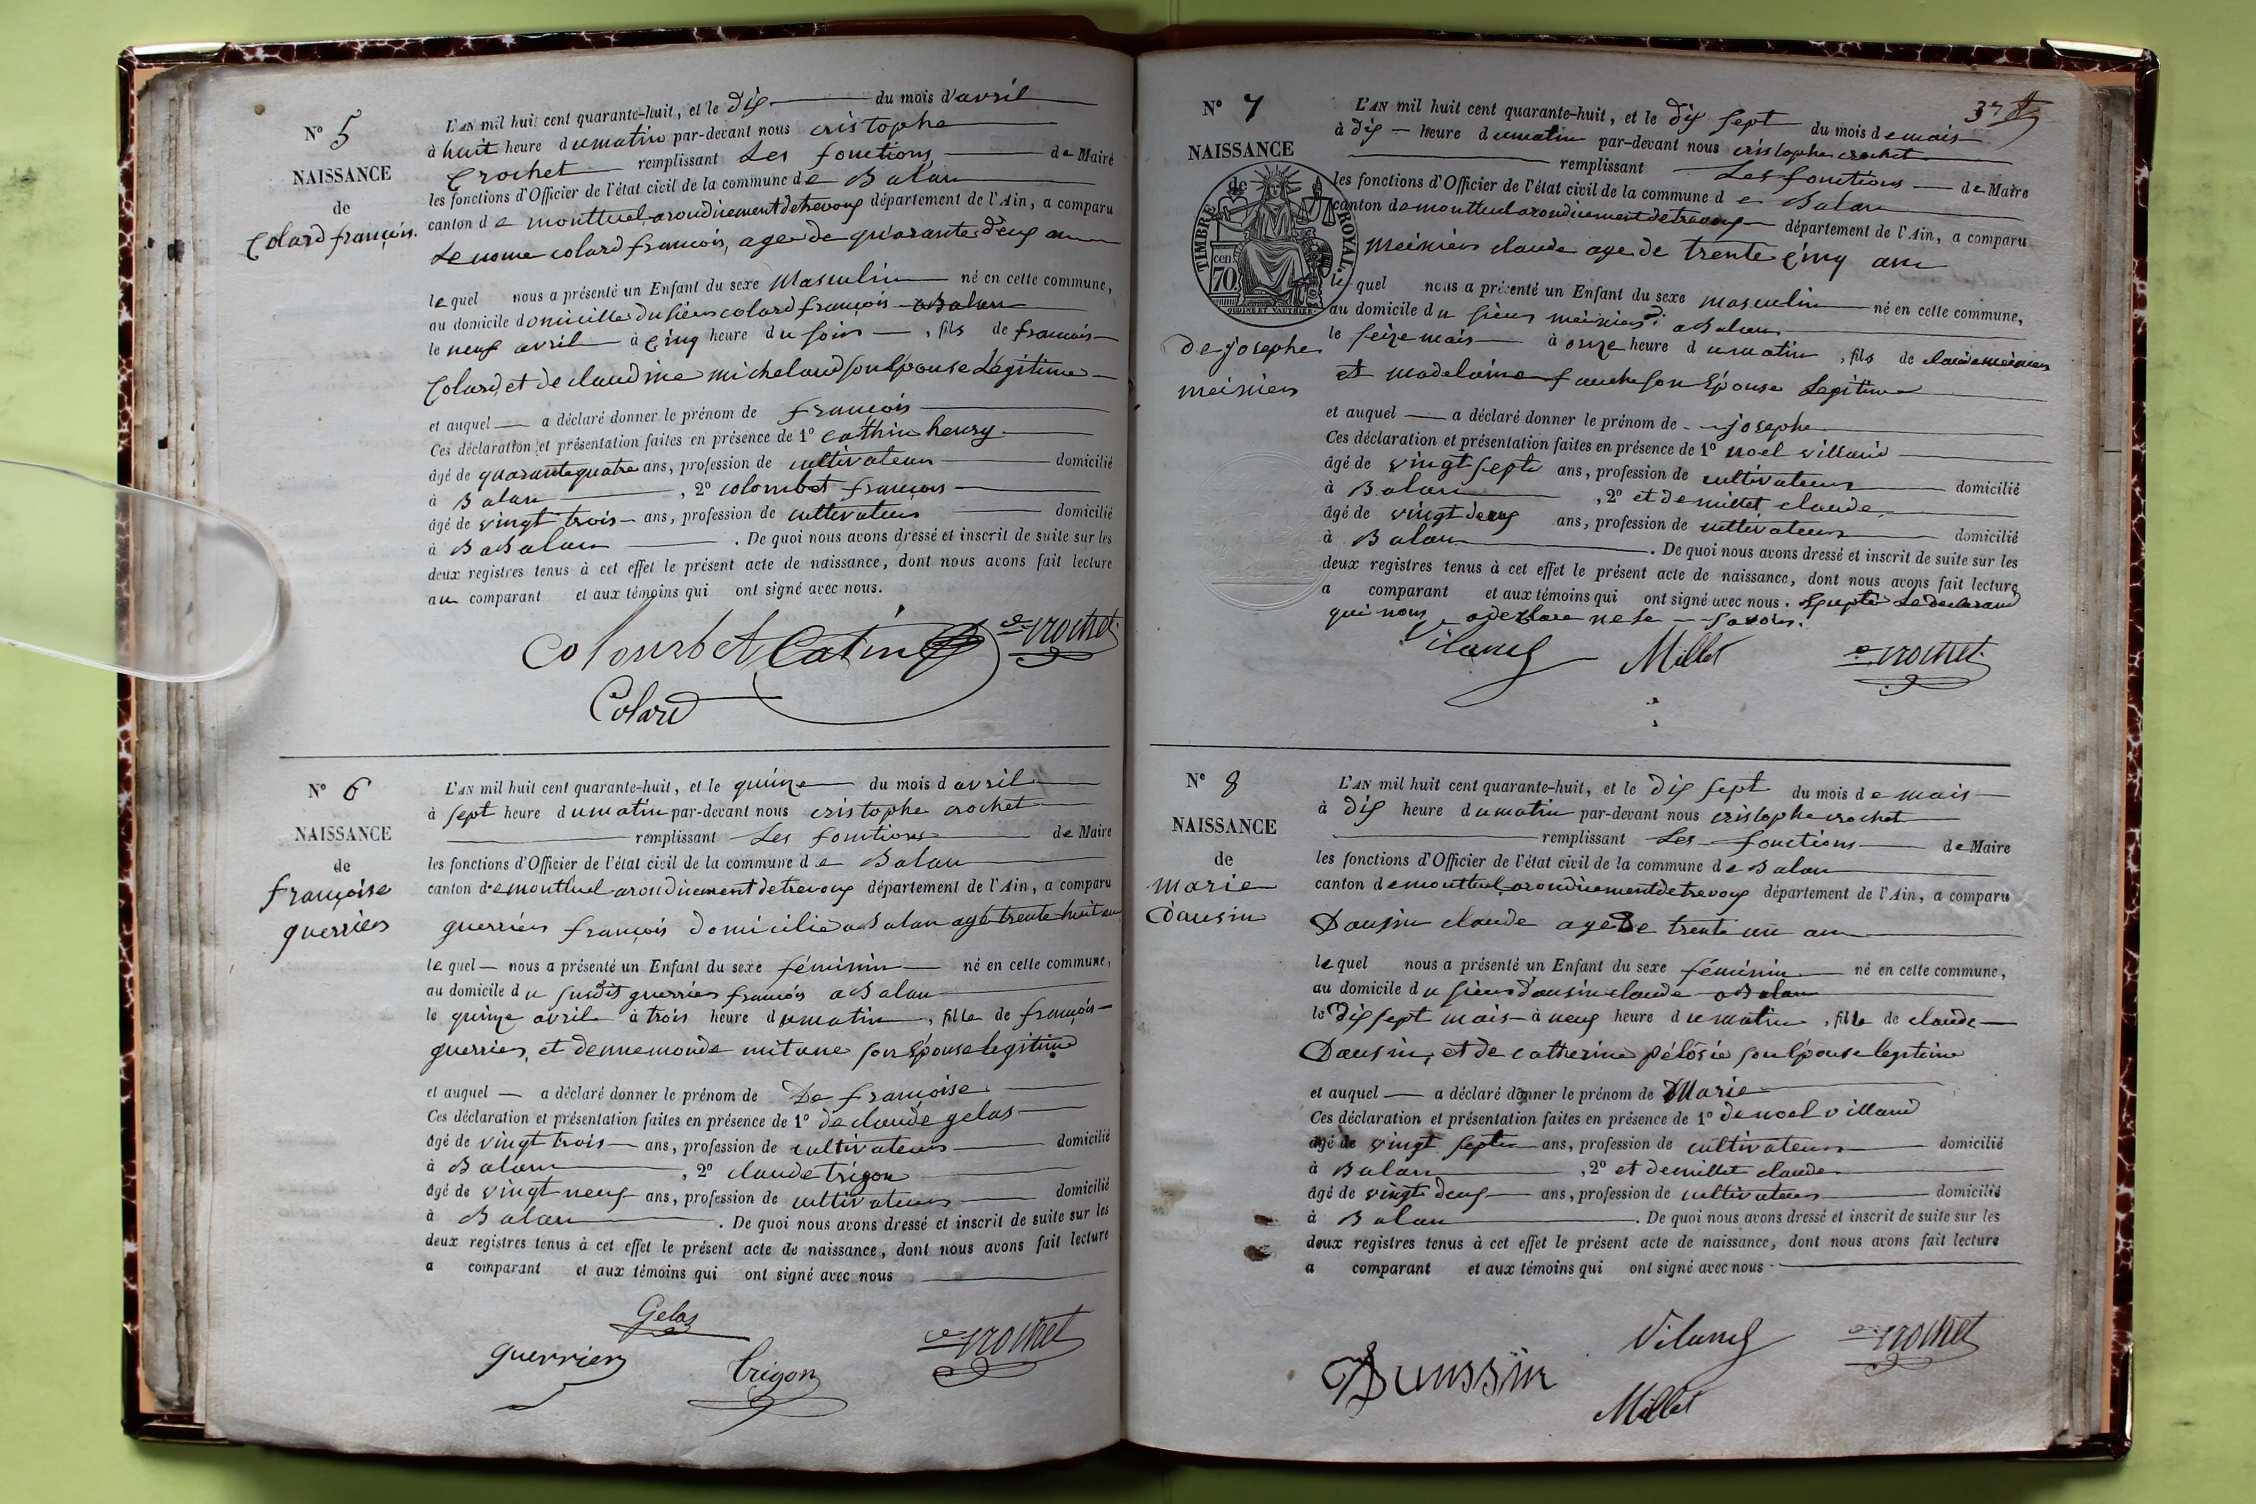 N° 5
NAISSANCE
de
Colard françois.
L'AN mil huit cent quarante-huit, et le dix du mois d'avril
à huit heure du matin par-devant nous cristophe
Crochet remplissant Les fonctions de Maire
les fonctions d'Officier de l'état civil de la commune de Balan
canton de montluel arondicement de trevoux département de l'Ain, a comparu
Le nome colard francois, age de quarante deux an
lequel nous a présenté un Enfant du sexe Masculin né en cette commune,
au domicile domicille du sieur colard françois a Balan
le neuf avril à cinq heure du soir, fils de francois
Colard, et de claudine michelaud son Epouse Legitime
et auquel a déclaré donner le prénom de françois
Ces déclaration et présentation faites en présence de 1° cathin henry
âgé de quarante quatre ans, profession de cultivateur domicilié
à Balan, 2° colombet françois
âgé de vingt trois ans, profession de cultivateur domicilié
à Balan. De quoi nous avons dressé et inscrit de suite sur les
deux registres tenus à cet effet le présent acte de naissance, dont nous avons fait lecture
au comparant et aux témoins qui ont signé avec nous.
Colombet Catin crochet
Colard
N° 6
NAISSANCE
de
françoise
guerrier
L'AN mil huit cent quarante-huit, et le quinze du mois d avril
à sept heure du matin par-devant nous cristophe crochet
remplissant Les fonctions de Maire
les fonctions d'Officier de l'état civil de la commune de Balan
canton de montluel arondicement de trevoux département de l'Ain, a comparu
guerrier françois domicilie a Balan agé trente huit an
lequel nous a présenté un Enfant du sexe féminin né en cette commune,
au domicile du susdit guerrier francois a Balan
le quinze avril à trois heure du matin, fille de françois
guerrier, et dennemonde mitane son Epouse legitime
et auquel a déclaré donner le prénom de De françoise
Ces déclaration et présentation faites en présence de 1° de claude gelas
âgé de vingt trois ans, profession de cultivateur domicilié
à Balan, 2° claude trigon
âgé de vingt neuf ans, profession de cultivateur domicilié
à Balan. De quoi nous avons dressé et inscrit de suite sur les
deux registres tenus à cet effet le présent acte de naissance, dont nous avons fait lecture
a comparant et aux témoins qui ont signé avec nous
Gelas
guerrier Trigon crochet
37
N° 7
NAISSANCE
de
TIMBRE ROYAL.
70 cen
de josephe
meinier
L'AN mil huit cent quarante-huit, et le dix sept du mois de mais
à dix heure du matin par-devant nous cristophe crochet
remplissant Les fonctions de Maire
les fonctions d'Officier de l'état civil de la commune de Balan
canton de montluel arondicement de trevoux département de l'Ain, a comparu
meinier claude age de trente cinq ans
lequel nous a présenté un Enfant du sexe masculin né en cette commune,
au domicile du sieur meinier a Balan
le seize mais à onze heure du matin, fils de claude meinier
et madelaine fauche son Epouse Legitime
et auquel a déclaré donner le prénom de josephe
Ces déclaration et présentation faites en présence de 1° noel villaud
âgé de vingt septe ans, profession de cultivateur domicilié
à Balan, 2° et de millet claude
âgé de vingt deux ans, profession de cultivateur domicilié
à Balan. De quoi nous avons dressé et inscrit de suite sur les
deux registres tenus à cet effet le présent acte de naissance, dont nous avons fait lecture
a comparant et aux témoins qui ont signé avec nous. Exupté Le declarand
qui nous a declare ne le savoir.
Millet crochet
N° 8
NAISSANCE
de
marie
dausin
L'AN mil huit cent quarante-huit, et le dix sept du mois de mais
à dix heure du matin par-devant nous cristophe crochet
remplissant Les fonctions de Maire
les fonctions d'Officier de l'état civil de la commune de Balan
canton de montluel arondicement de trevoux département de l'Ain, a comparu
Dausin claude age De trente un an
lequel nous a présenté un Enfant du sexe féminin né en cette commune,
au domicile du sieur dausin claude a Balan
le dix sept mais à neuf heure du matin, fille de claude
Dausin, et de catherine pélôsie son Epouse legitime
et auquel a déclaré donner le prénom de Marie
Ces déclaration et présentation faites en présence de 1° de noel villaud
âgé de vingt septe ans, profession de cultivateur domicilié
à Balan, 2° et de millet claude
âgé de vingt deux ans, profession de cultivateur domicilié
à Balan. De quoi nous avons dressé et inscrit de suite sur les
deux registres tenus à cet effet le présent acte de naissance, dont nous avons fait lecture
a comparant et aux témoins qui ont signé avec nous
crochet
Dunssin
Millet